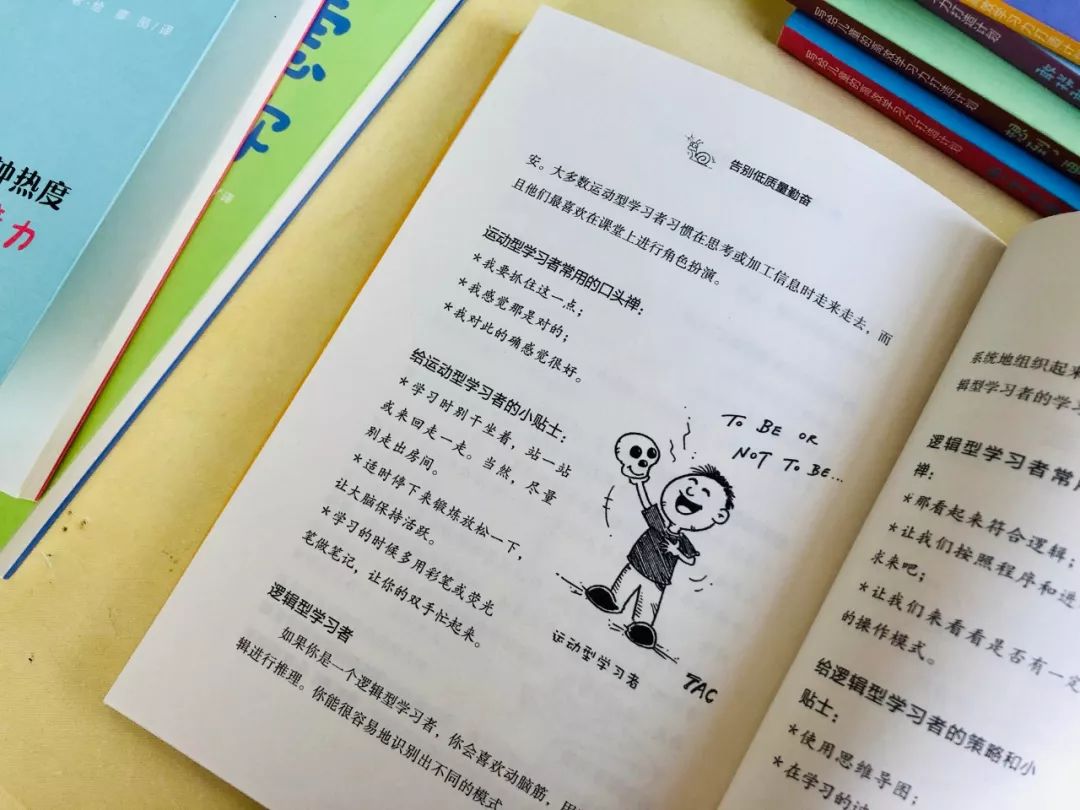 告别低质量勤奋
安。大多数运动型学习者习惯在思考或加工信息时走来走去,而
且他们最喜欢在课堂上进行角色扮演。
运动型学习者常用的口头禅:
*我要抓住这一点;
*我感觉那是对的;
*我对此的确感觉很好。
给运动型学习者的小贴士:
*学习时别干坐着,站一站
或来回走一走。当然,尽量
别走出房间。
*适时停下来锻炼放松一下,
让大脑保持活跃。
*学习的时候多用彩笔或荧光
笔做笔记,让你的双手忙起来。
TO BE OR
NOT TO BE...
运动型学习者
TAC
逻辑型学习者
如果你是一个逻辑型学习者,你会喜欢动脑筋,用
辑进行推理。你能很容易地识别出不同的模式
系统地组织起来
辑型学习者的学习
逻辑型学习者常用
禅:
*那看起来符合逻辑;
*让我们按照程序和进
求来吧;
*让我们来看看是否有一定
的操作模式。
给逻辑型学习者的策略和小
贴士:
*使用思维导图;
*在学习的过
绘 廖 酷/译
钟热度
力
译
写给儿童的高效学习力打造计划
写给儿童的高效学习力打造计划
力打造计划
效学习力打造计